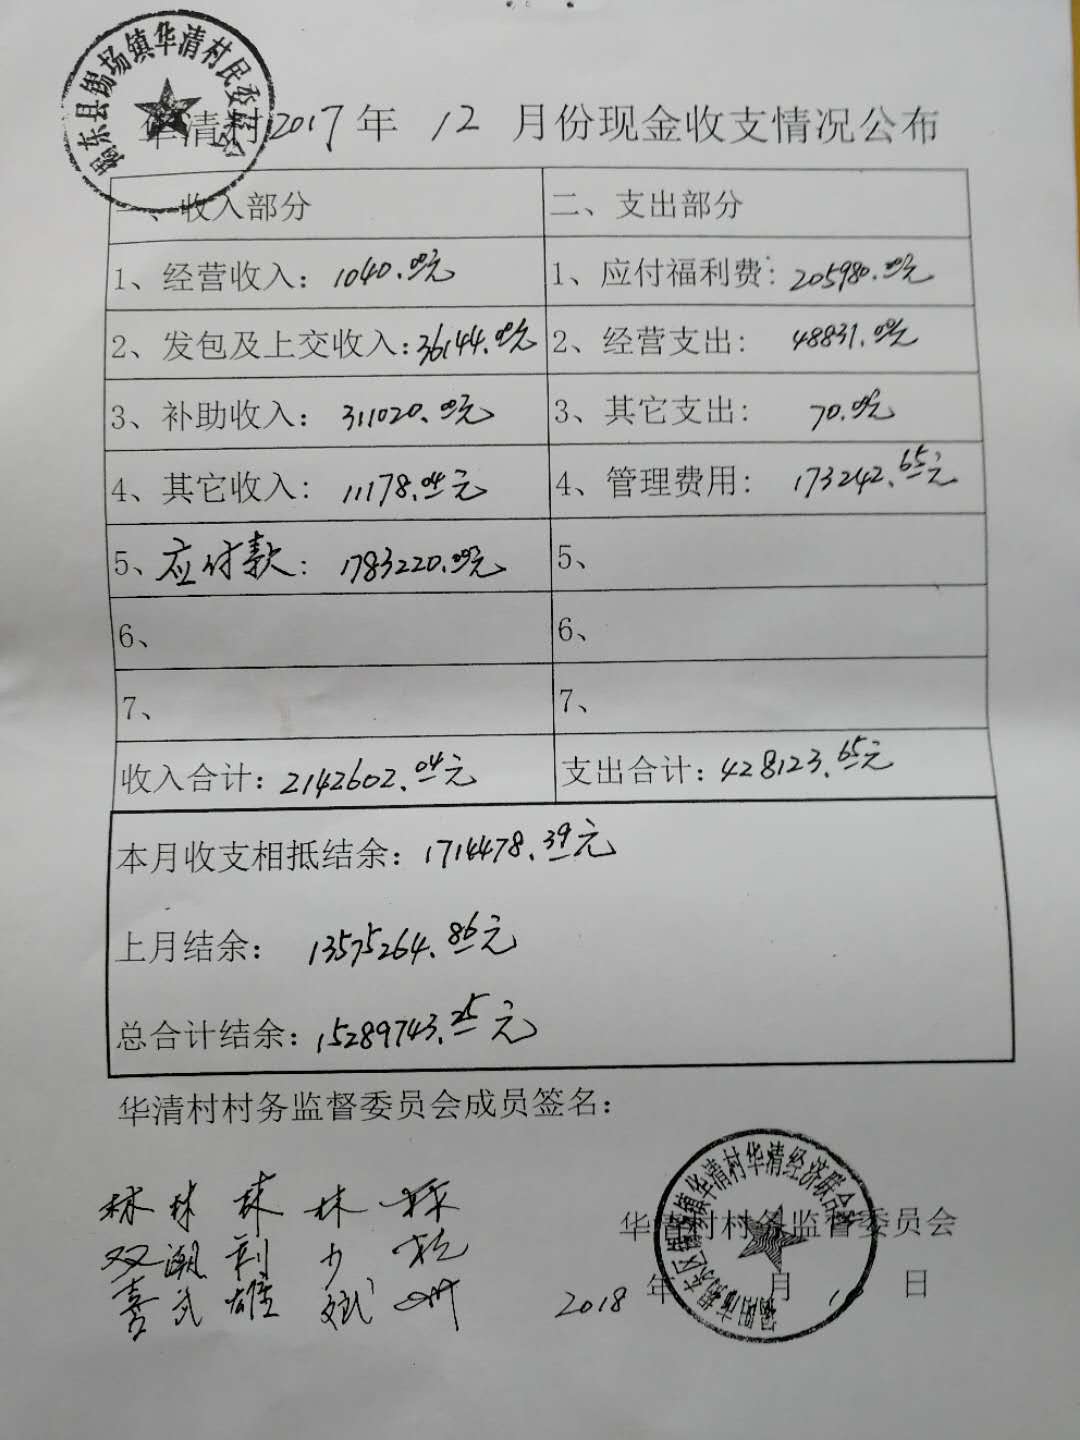 揭东县锡场镇华清村民委员会
华清村2017年 12 月份现金收支情况公布
一、收入部分 二、支出部分
1、经营收入：1040.00元 1、应付福利费：205980.00元
2、发包及上交收入：36144.00元 2、经营支出： 48831.00元
3、补助收入： 311020.00元 3、其它支出： 70.00元
4、其它收入： 11178.04元 4、管理费用： 173242.65元
5、应付款： 1783220.00元 5、
6、 6、
7、 7、
收入合计：2142602.04元 支出合计：428123.65元
本月收支相抵结余：1714478.39元
上月结余： 13575264.86元
总合计结余：15289743.25元
华清村村务监督委员会成员签名：
林双喜 林潮武 林利雄 林少斌 林松
揭阳市揭东区锡场镇华清村华清经济联合社
华清村村务监督委员会
2018 年 月 10 日